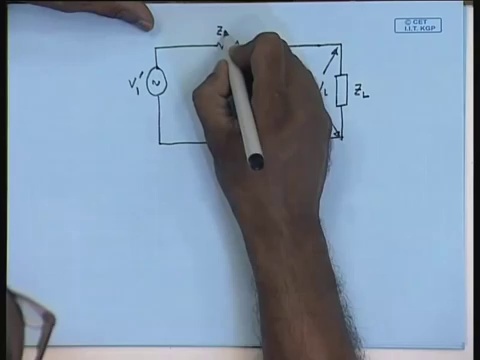 © CET
I.I.T. KGP
Z
V₁'
~
Z_L